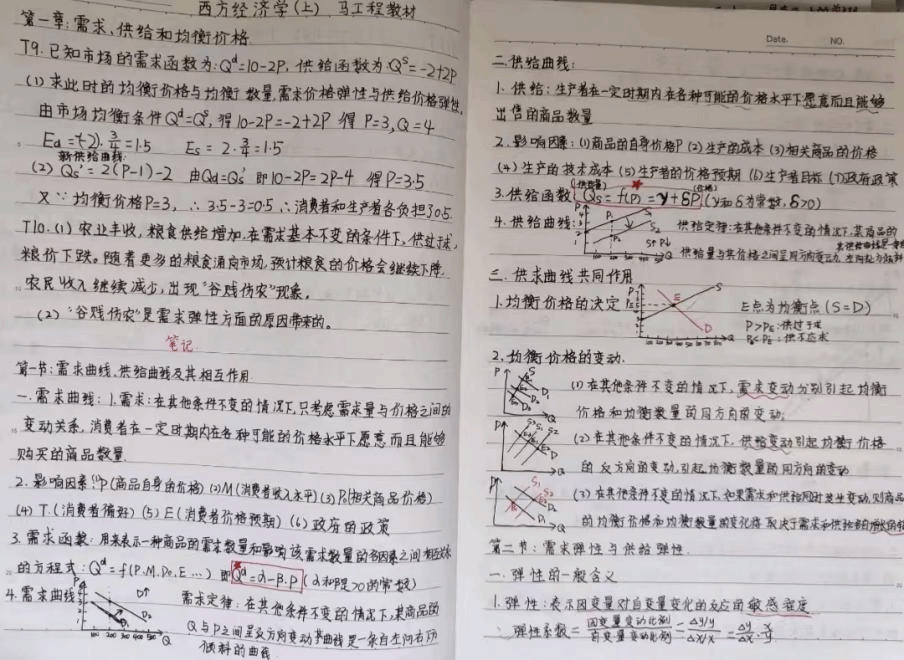 西方经济学(上) 马工程教材
第一章:需求、供给和均衡价格
T9.已知市场的需求函数为:Qᵈ=10-2P, 供给函数为:Qˢ=-2+2P
(1) 求此时的均衡价格与均衡数量,需求价格弹性与供给价格弹性.
由市场均衡条件Qᵈ=Qˢ, 得10-2P=-2+2P 得 P=3, Q=4
Ed=-(-2)·3/4=1.5 Es=2·3/4=1.5
新供给曲线:
(2) Qs'=2(P-1)-2 由Qd=Qs' 即10-2P=2P-4 得P=3.5
又∵均衡价格P=3, ∴3.5-3=0.5 ∴消费者和生产者各负担了0.5.
T10.(1) 农业丰收,粮食供给增加,在需求基本不变的条件下,供过于求,
粮价下跌。随着更多的粮食涌向市场,预计粮食的价格会继续下降,
农民收入继续减少,出现"谷贱伤农"现象。
(2) "谷贱伤农"是需求弹性方面的原因带来的。
笔记
第一节:需求曲线、供给曲线及其相互作用
一.需求曲线: 1.需求:在其他条件不变的情况下,只考虑需求量与价格之间的
变动关系,消费者在一定时期内在各种可能的价格水平下愿意而且能够
购买的商品数量
2.影响因素:(1)P(商品自身的价格) (2)M(消费者收入水平) (3)Pr(相关商品价格)
(4) T.(消费者偏好) (5) E(消费者价格预期) (6)政府的政策
3.需求函数:用来表示一种商品的需求数量和影响该需求数量的各因素之间相互关系
的方程式:Qᵈ=f(P.M.Pr.E…) 即 Qᵈ=α-β.P (α和β是>0的常数)
4.需求曲线: P D↑ D₂ Q
需求定律:在其他条件不变的情况下,某商品的
Q与P之间呈反方向变动 需求曲线是一条自左向右下方
倾斜的曲线
Date. NO.
二.供给曲线:
1.供给:生产者在一定时期内,在各种可能的价格水平下愿意而且能够
出售的商品数量
2.影响因素:(1)商品的自身价格P (2)生产的成本 (3)相关商品的价格
(4)生产的技术成本 (5)生产者的价格预期 (6)生产者目标 (7)政府政策
3.供给函数 (供给量) Qs=f(P)=-γ+δP (价格) (γ和δ为常数,δ>0)
4.供给曲线: P S₂ S↑P↓ Q
供给定律:在其他条件不变的情况下,某商品的
供给量与其价格之间呈同方向变动
三.供求曲线共同作用
1.均衡价格的决定 P S E D Q
E点为均衡点(S=D)
P>PE:供过于求
P<PE:供不应求
2.均衡价格的变动.
(1)在其他条件不变的情况下,需求变动分别引起均衡
价格和均衡数量的同方向的变动;
(2)在其他条件不变的情况下,供给变动引起均衡价格
的反方向的变动,引起均衡数量的同方向的变动
(3)在其他条件不变的情况下,如果需求和供给同时发生变动,则商品
的均衡价格和均衡数量的变化将取决于需求和供给各自的
第二节:需求弹性与供给弹性.
一.弹性的一般含义
1.弹性:表示因变量对自变量变化的反应的敏感程度
弹性系数=因变量变动比例/自变量变动比例=(Δy/y)/(Δx/x)=Δy/Δx·x/y